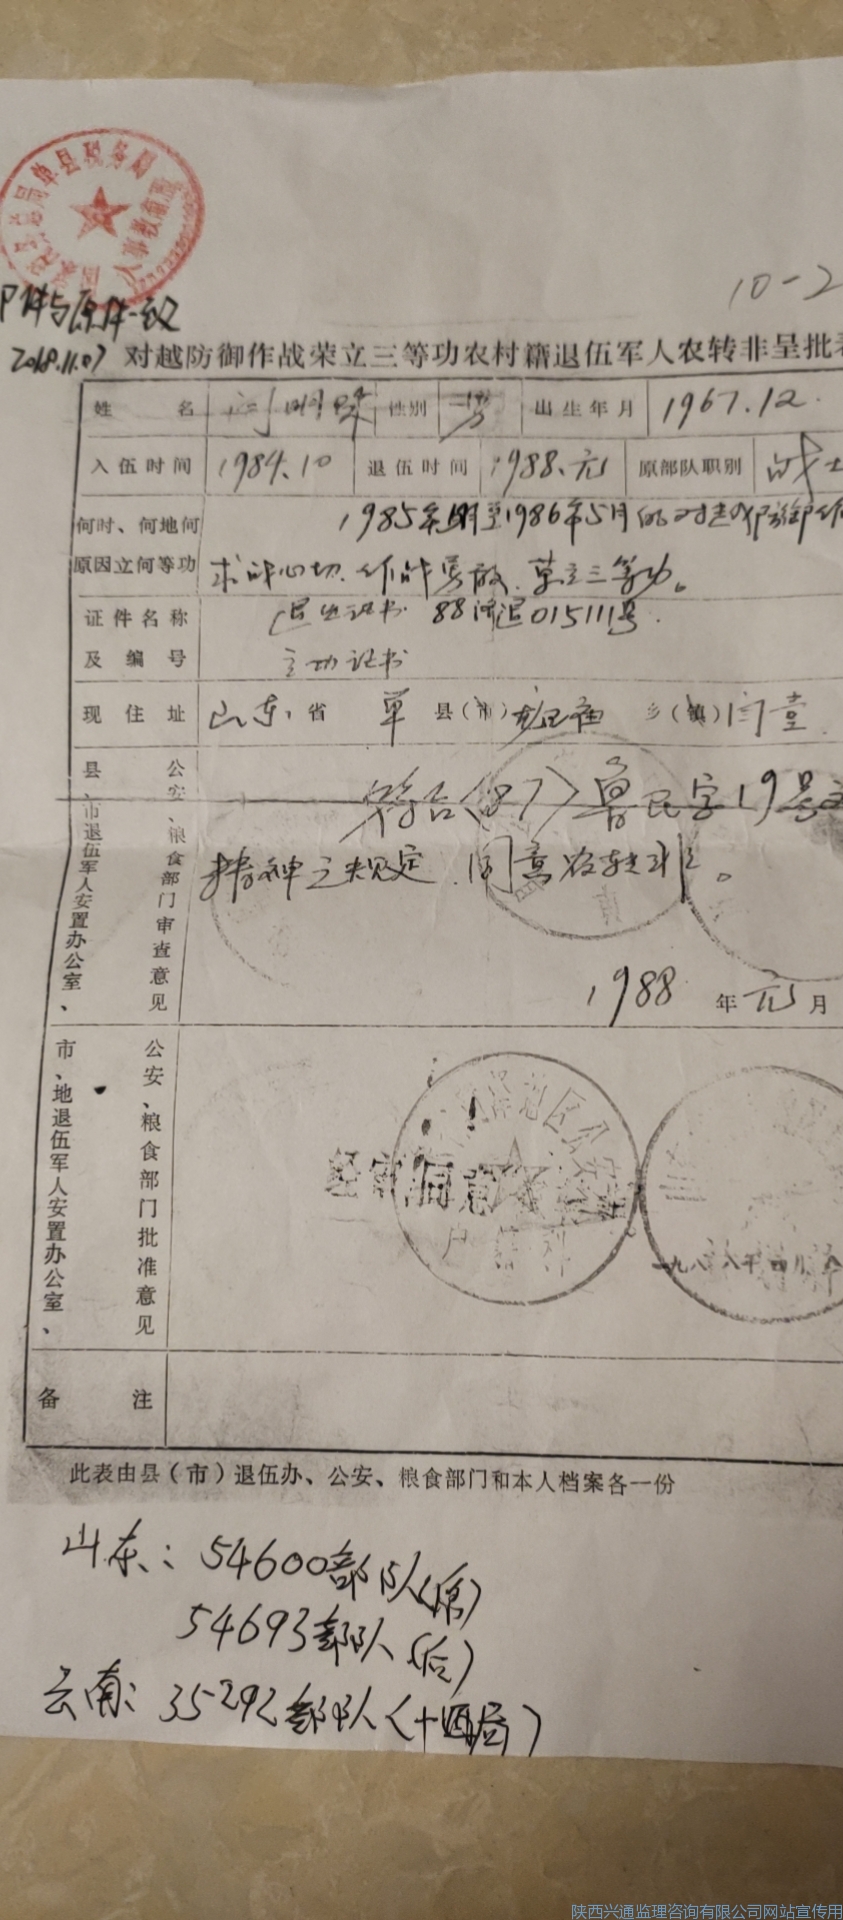 单县税务局
10-2
复印件与原件一致
2018.11.07
对越防御作战荣立三等功农村籍退伍军人农转非呈批表
姓 名 性别 男 出生年月 1967.12.
入伍时间 1984.10 退伍时间 1988.元 原部队职别 战士
何时、何地何 1985年 至1986年5月的对越防御作
原因立何等功 求战心切.作战勇敢.荣立三等功。
证件名称 退伍证书 88 退015111号.
及编号 立功证书
现住址 山东省 单县(市) 乡(镇)闫堂
县、市退伍军人安置办公室、
公安、粮食部门审查意见
符合〈87〉鲁民字19号文
精神之规定.同意农转非。
1988 年元月
市、地退伍军人安置办公室、
公安、粮食部门批准意见
经审同意
一九八八年四月
备 注
此表由县(市)退伍办、公安、粮食部门和本人档案各一份
山东:54600部队(原)
54693部队(后)
云南:35292部队(十四局)
陕西兴通监理咨询有限公司网站宣传用